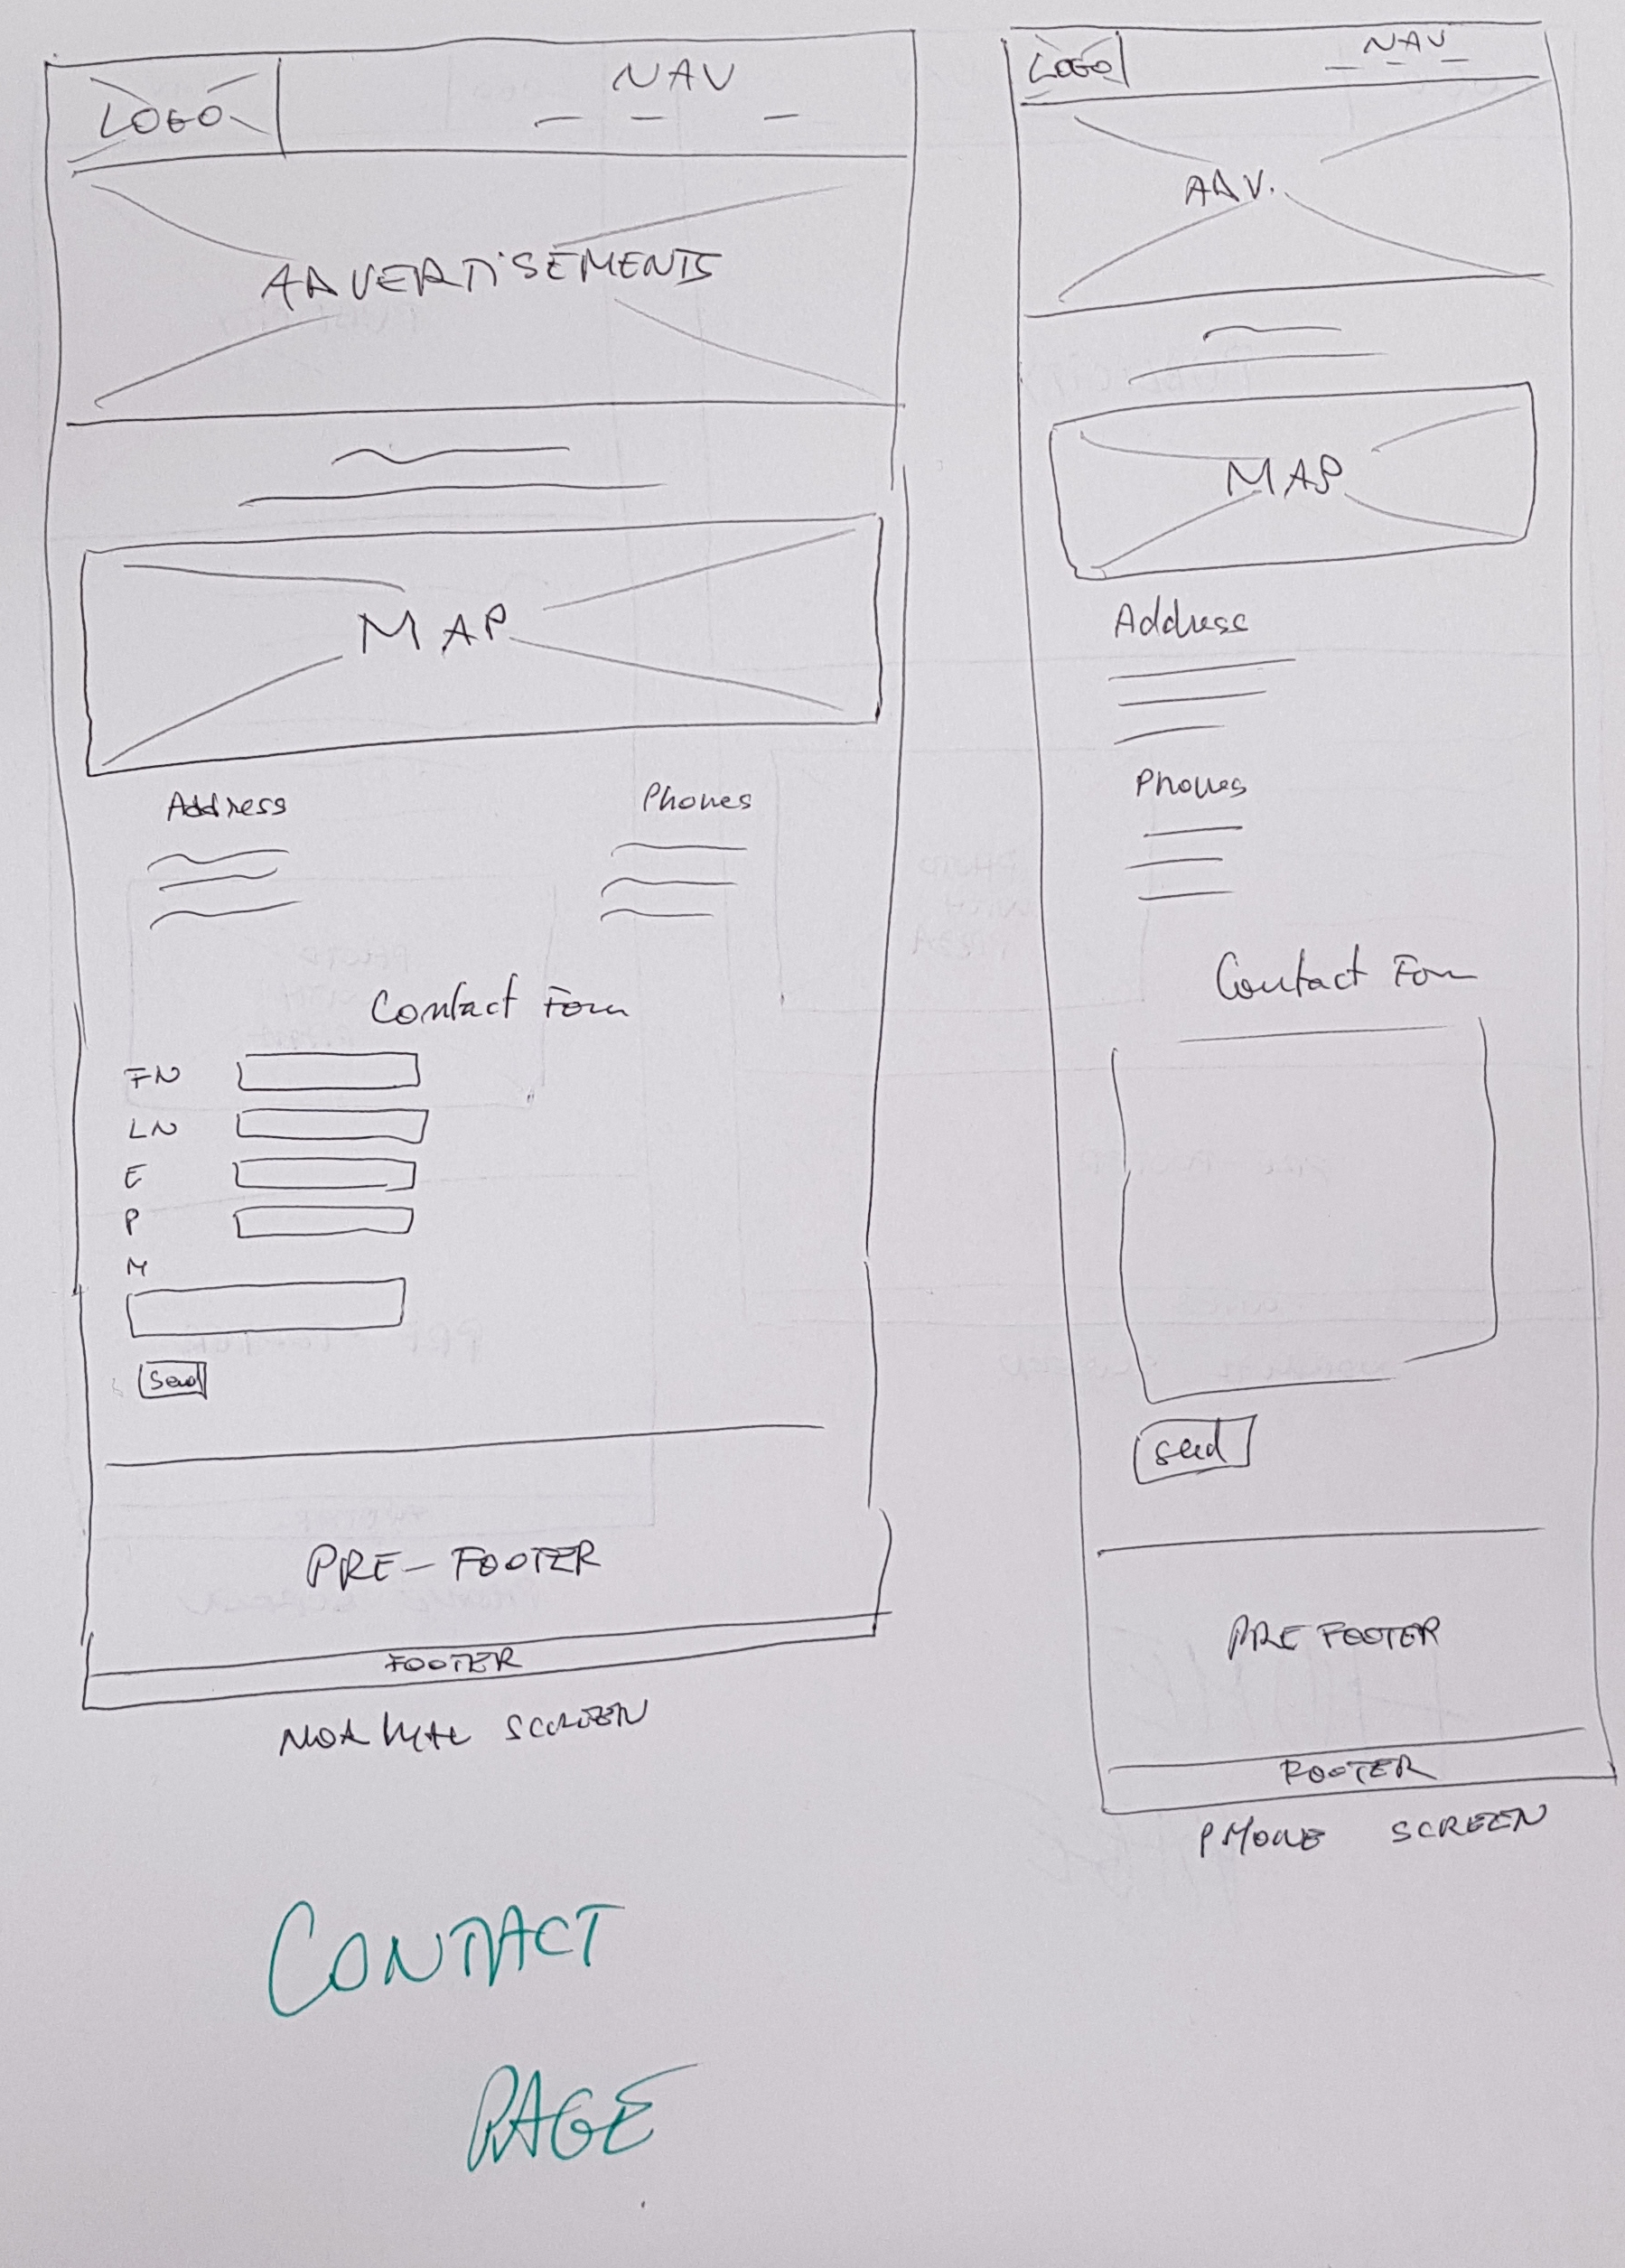 LOGO
NAV
ADVERTISEMENTS
MAP
Address
Phones
Contact Form
FN
LN
E
P
M
Send
PRE-FOOTER
FOOTER
NORMAL SCREEN
LOGO
NAV
ADV.
MAP
Address
Phones
Contact Form
Send
PRE FOOTER
FOOTER
PHONE SCREEN
CONTACT
PAGE